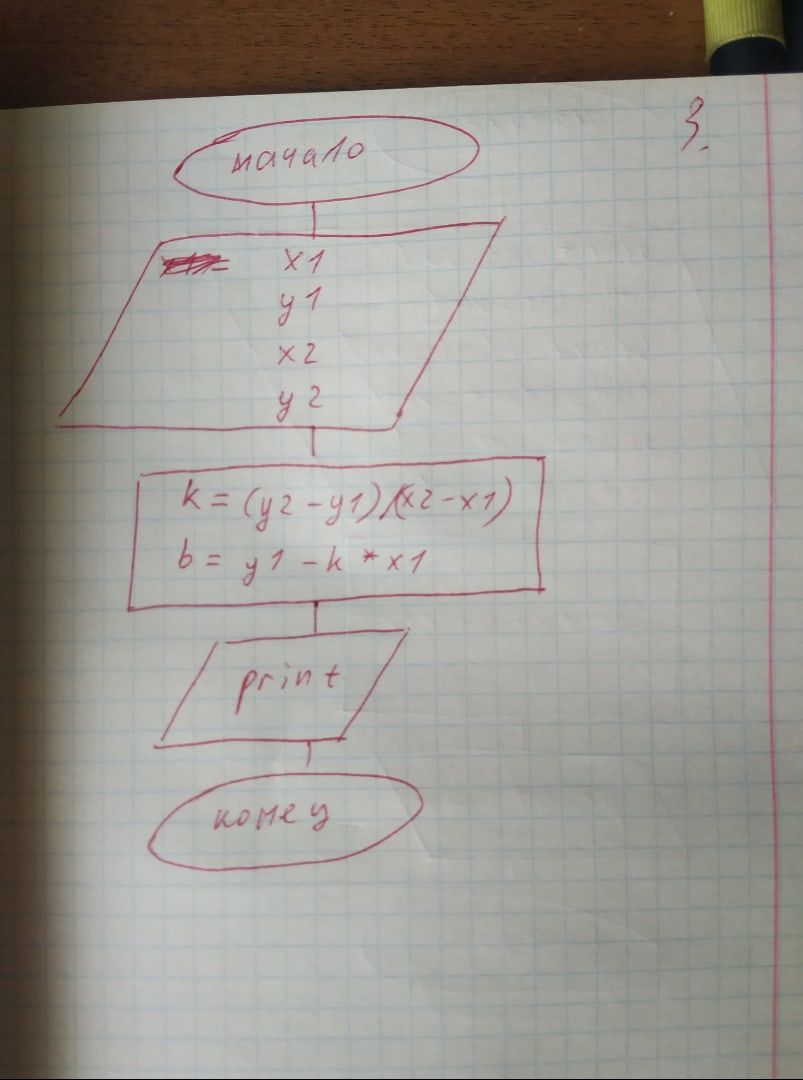 3.
начало
x1
y1
x2
y2
k = (y2 - y1)/(x2 - x1)
b = y1 - k * x1
print
конец